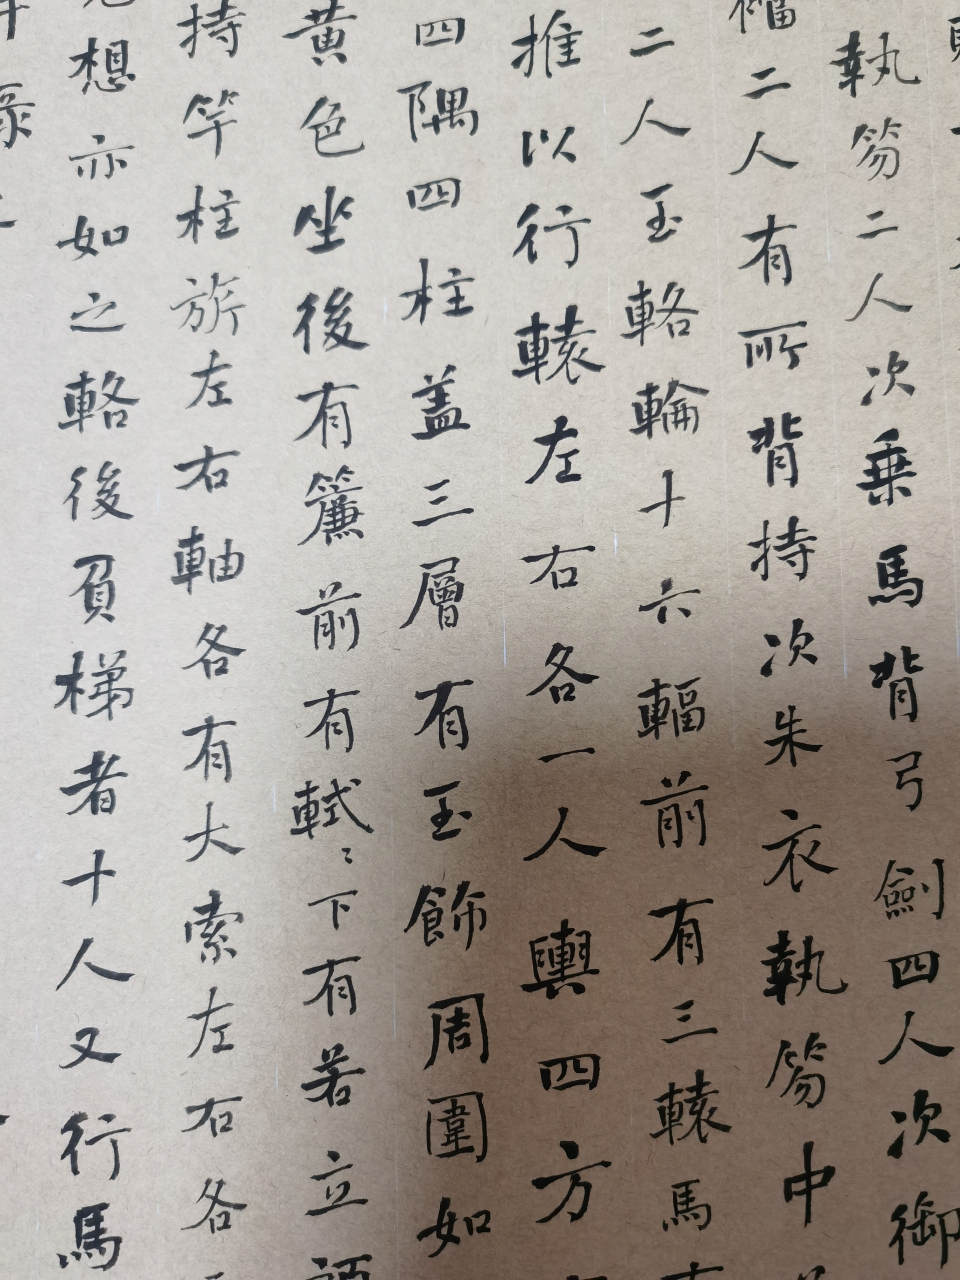 執笏二人次乗馬背弓劍四人次御
二人有所背持次朱衣執笏中
二人玉輅輪十六輻前有三轅馬
推以行轅左右各一人輿四方
四隅四柱蓋三層有玉飾周圍如
黄色坐後有簾前有軾〻下有若立
持竿柱旂左右軸各有大索左右各
想亦如之輅後負梯者十人又行馬